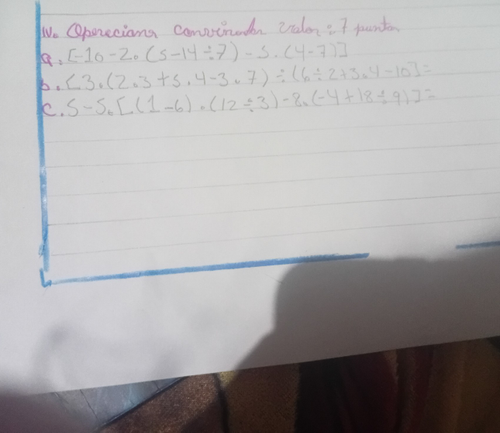 IV. Operecians convinadas valor = 7 puntos
a. [-10-2.(5-14÷7)-5.(4-7)]
b. [3.(2.3+5.4-3.7)÷(6÷2+3.4-10]=
c. 5-5.[.(1-6).(12÷3)-8.(-4+18÷9)]=